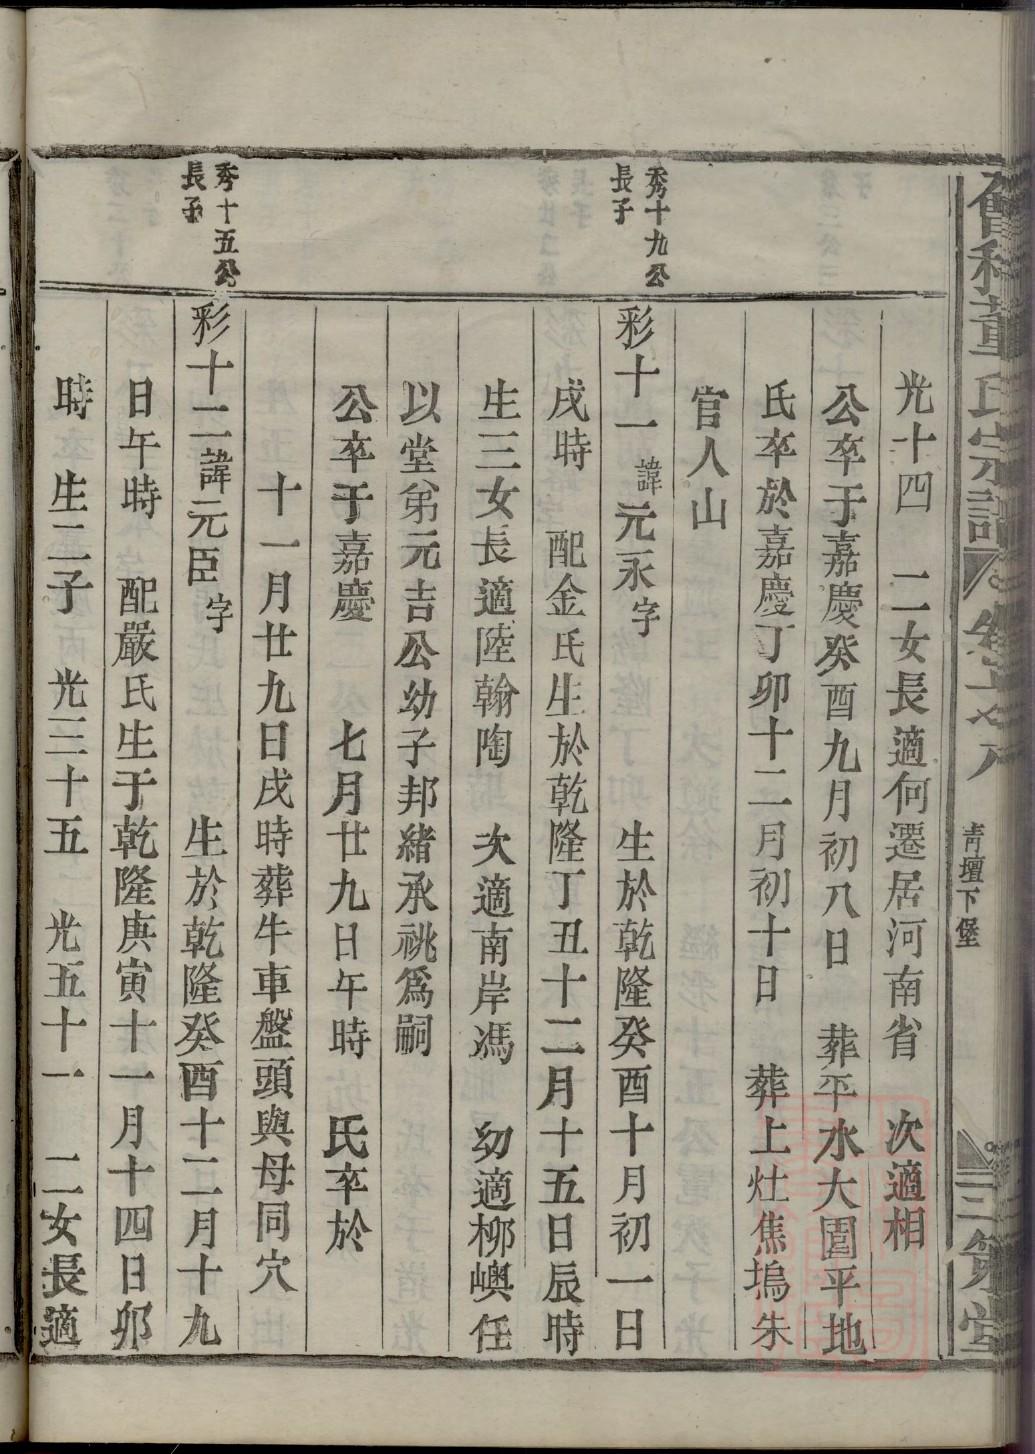 會稽董氏宗譜
青壇下堡
三策堂
光十四 二女長適何遷居河南省 次適相
公卒于嘉慶癸酉九月初八日 葬平水大園平地
氏卒於嘉慶丁卯十二月初十日 葬上灶焦塢朱
官人山
秀十九公
長子
彩十一 諱元永字 生於乾隆癸酉十月初一日
戌時 配金氏生於乾隆丁丑十二月十五日辰時
生三女長適陸翰陶 次適南岸馮 幼適柳嶼任
以堂弟元吉公幼子邦緒承祧為嗣
公卒于嘉慶 七月廿九日午時 氏卒於
十一月廿九日戌時葬牛車盤頭與母同穴
秀十五公
長子
彩十二諱元臣字 生於乾隆癸酉十二月十九
日午時 配嚴氏生于乾隆庚寅十一月十四日卯
時 生二子 光三十五 光五十一 二女長適